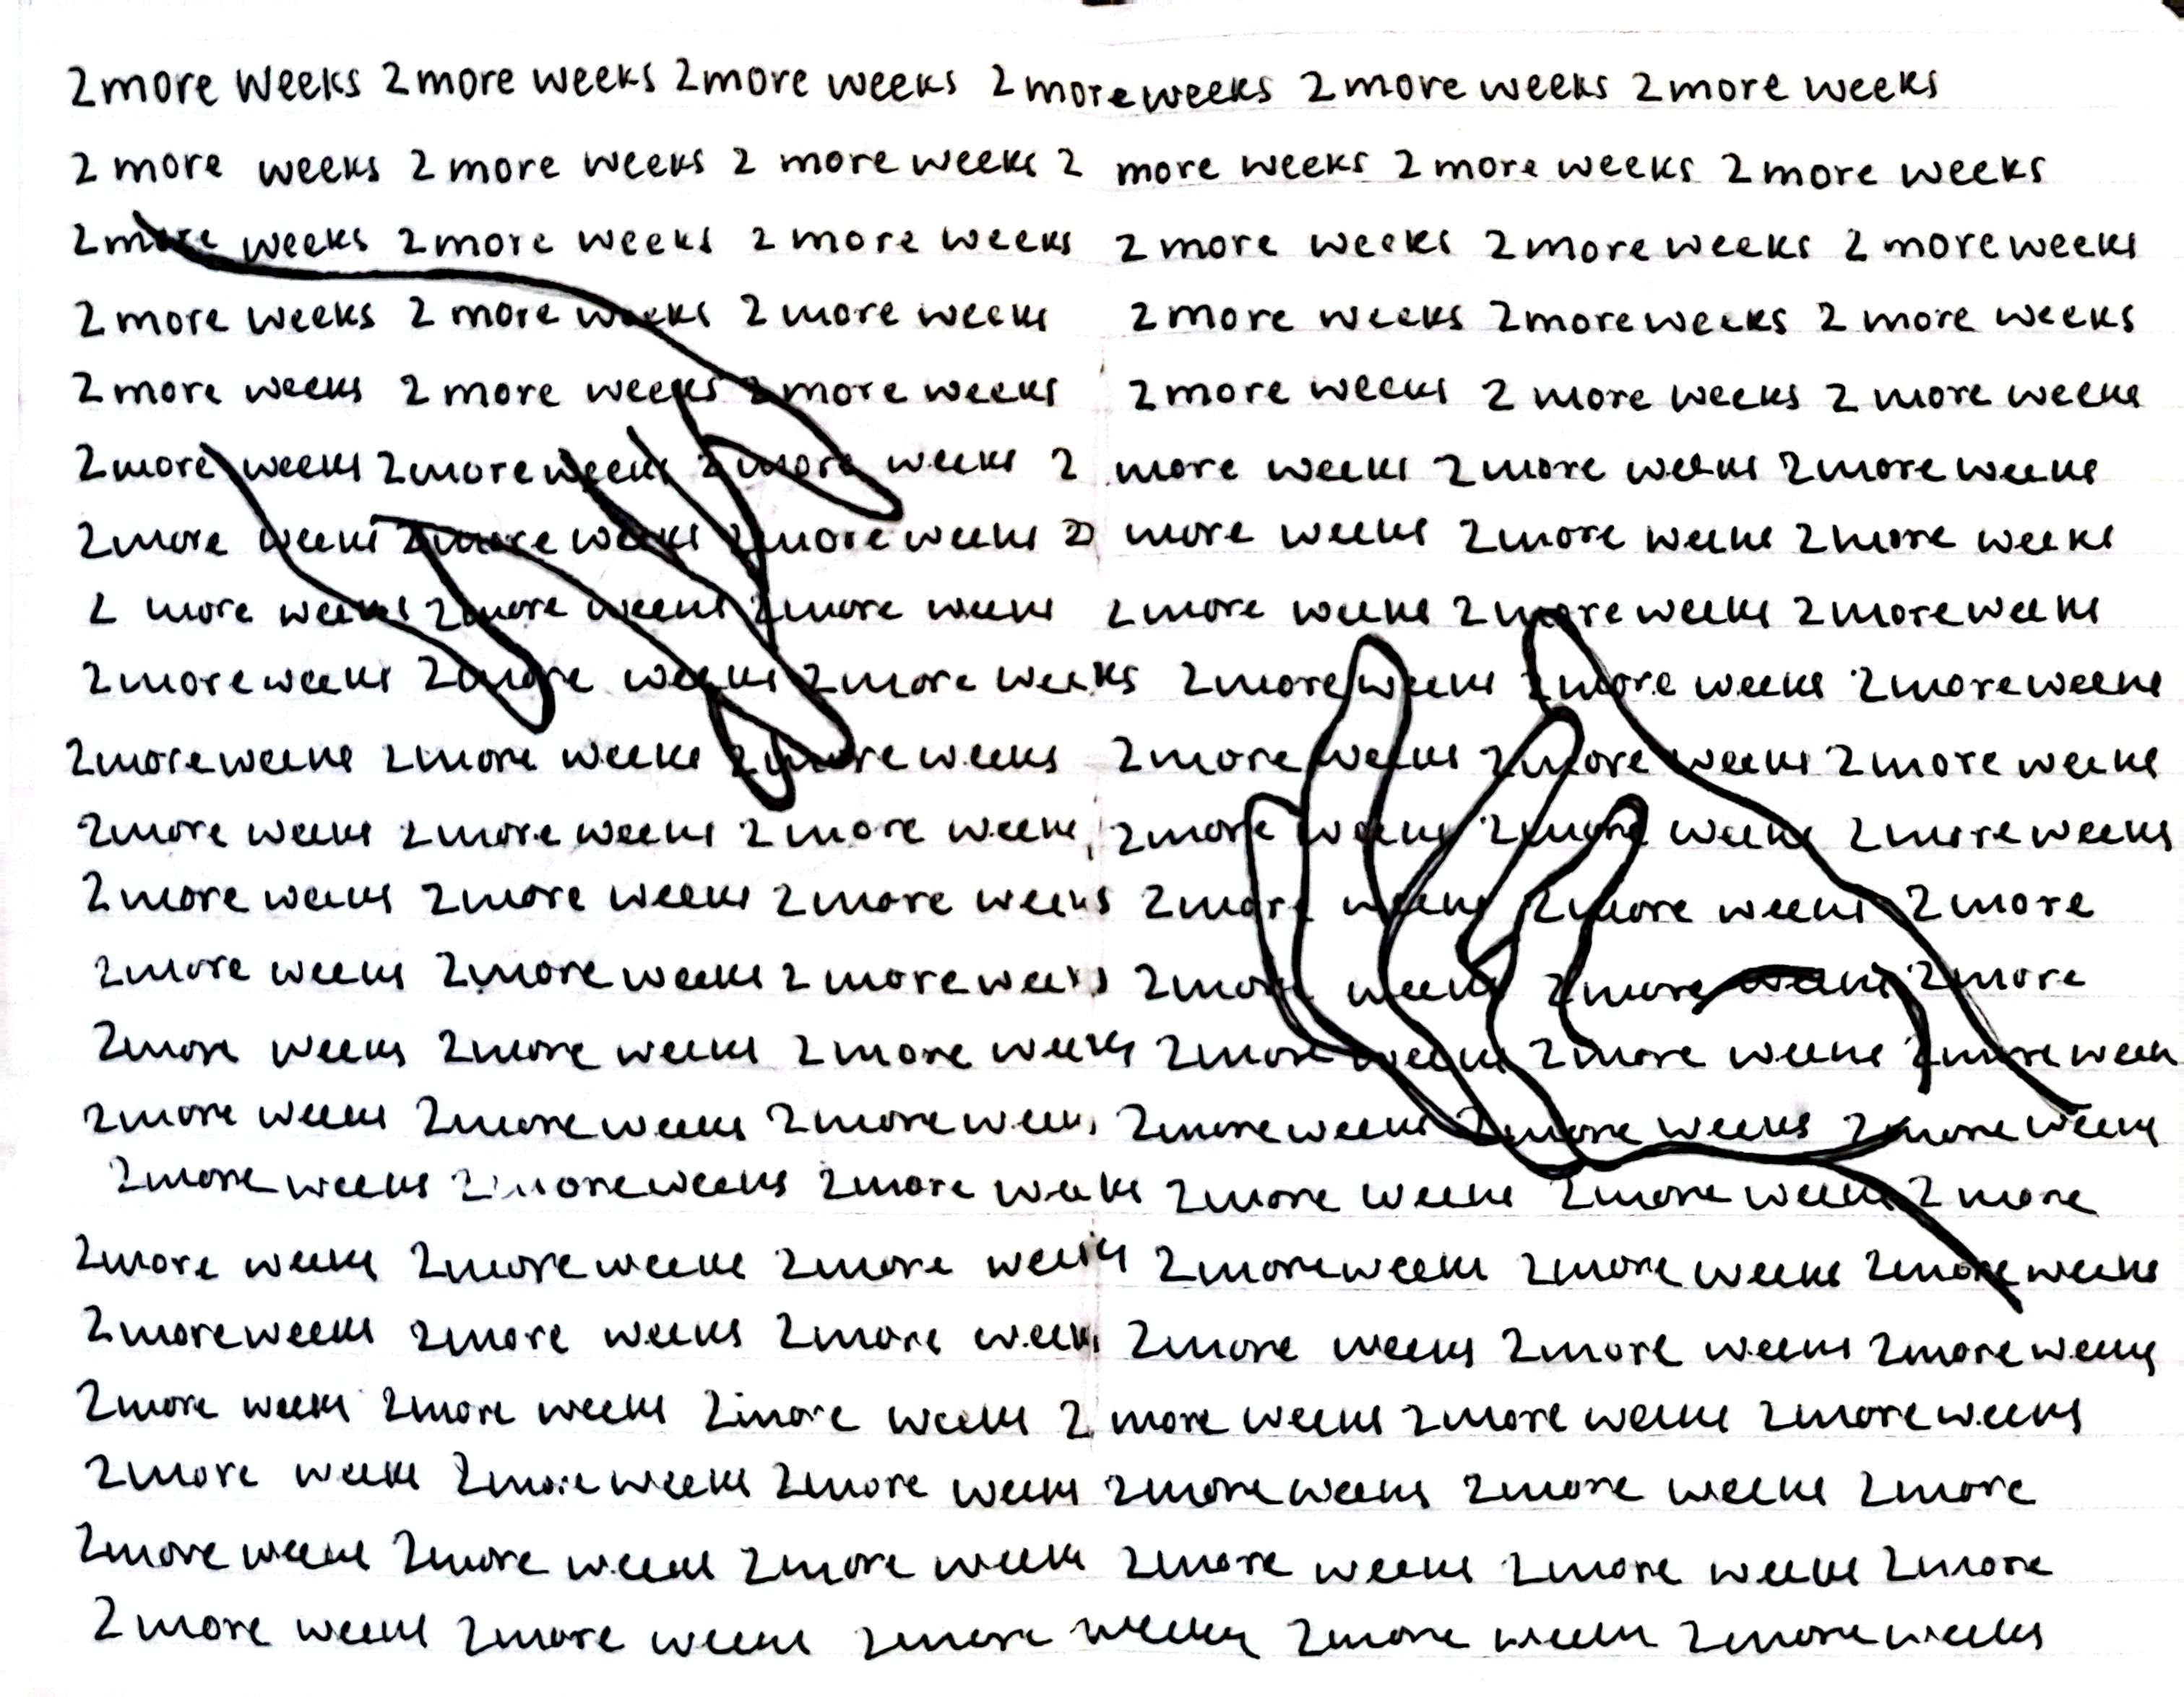 2more weeks 2more weeks 2more weeks 2more weeks 2more weeks 2more weeks
2 more weeks 2 more weeks 2 more weeks 2 more weeks 2 more weeks 2 more weeks
2more weeks 2more weeks 2 more weeks 2 more weeks 2more weeks 2 more weeks
2 more weeks 2 more weeks 2 more weeks 2 more weeks 2more weeks 2 more weeks
2 more weeks 2 more weeks 2more weeks 2more weeks 2 more weeks 2 more weeks
2more weeks 2more weeks 2more weeks 2 more weeks 2more weeks 2more weeks
2more weeks 2more weeks 2more weeks 2 more weeks 2more weeks 2more weeks
2 more weeks 2more weeks 2more weeks 2more weeks 2more weeks 2more weeks
2more weeks 2more weeks 2more weeks 2more weeks 2more weeks 2more weeks
2more weeks 2more weeks 2more weeks 2more weeks 2more weeks 2more weeks
2more weeks 2more weeks 2more weeks 2more weeks 2more weeks 2more weeks
2more weeks 2more weeks 2more weeks 2more weeks 2more weeks 2more
2more weeks 2more weeks 2more weeks 2more weeks 2more weeks 2more
2more weeks 2more weeks 2more weeks 2more weeks 2more weeks 2more week
2more weeks 2more weeks 2more weeks 2more weeks 2more weeks 2more weeks
2more weeks 2more weeks 2more weeks 2more weeks 2more weeks 2more
2more weeks 2more weeks 2more weeks 2more weeks 2more weeks 2more weeks
2more weeks 2more weeks 2more weeks 2more weeks 2more weeks 2more weeks
2more weeks 2more weeks 2more weeks 2 more weeks 2more weeks 2more weeks
2more weeks 2more weeks 2more weeks 2more weeks 2more weeks 2more
2more weeks 2more weeks 2more weeks 2more weeks 2more weeks 2more
2more weeks 2more weeks 2more weeks 2more weeks 2more weeks